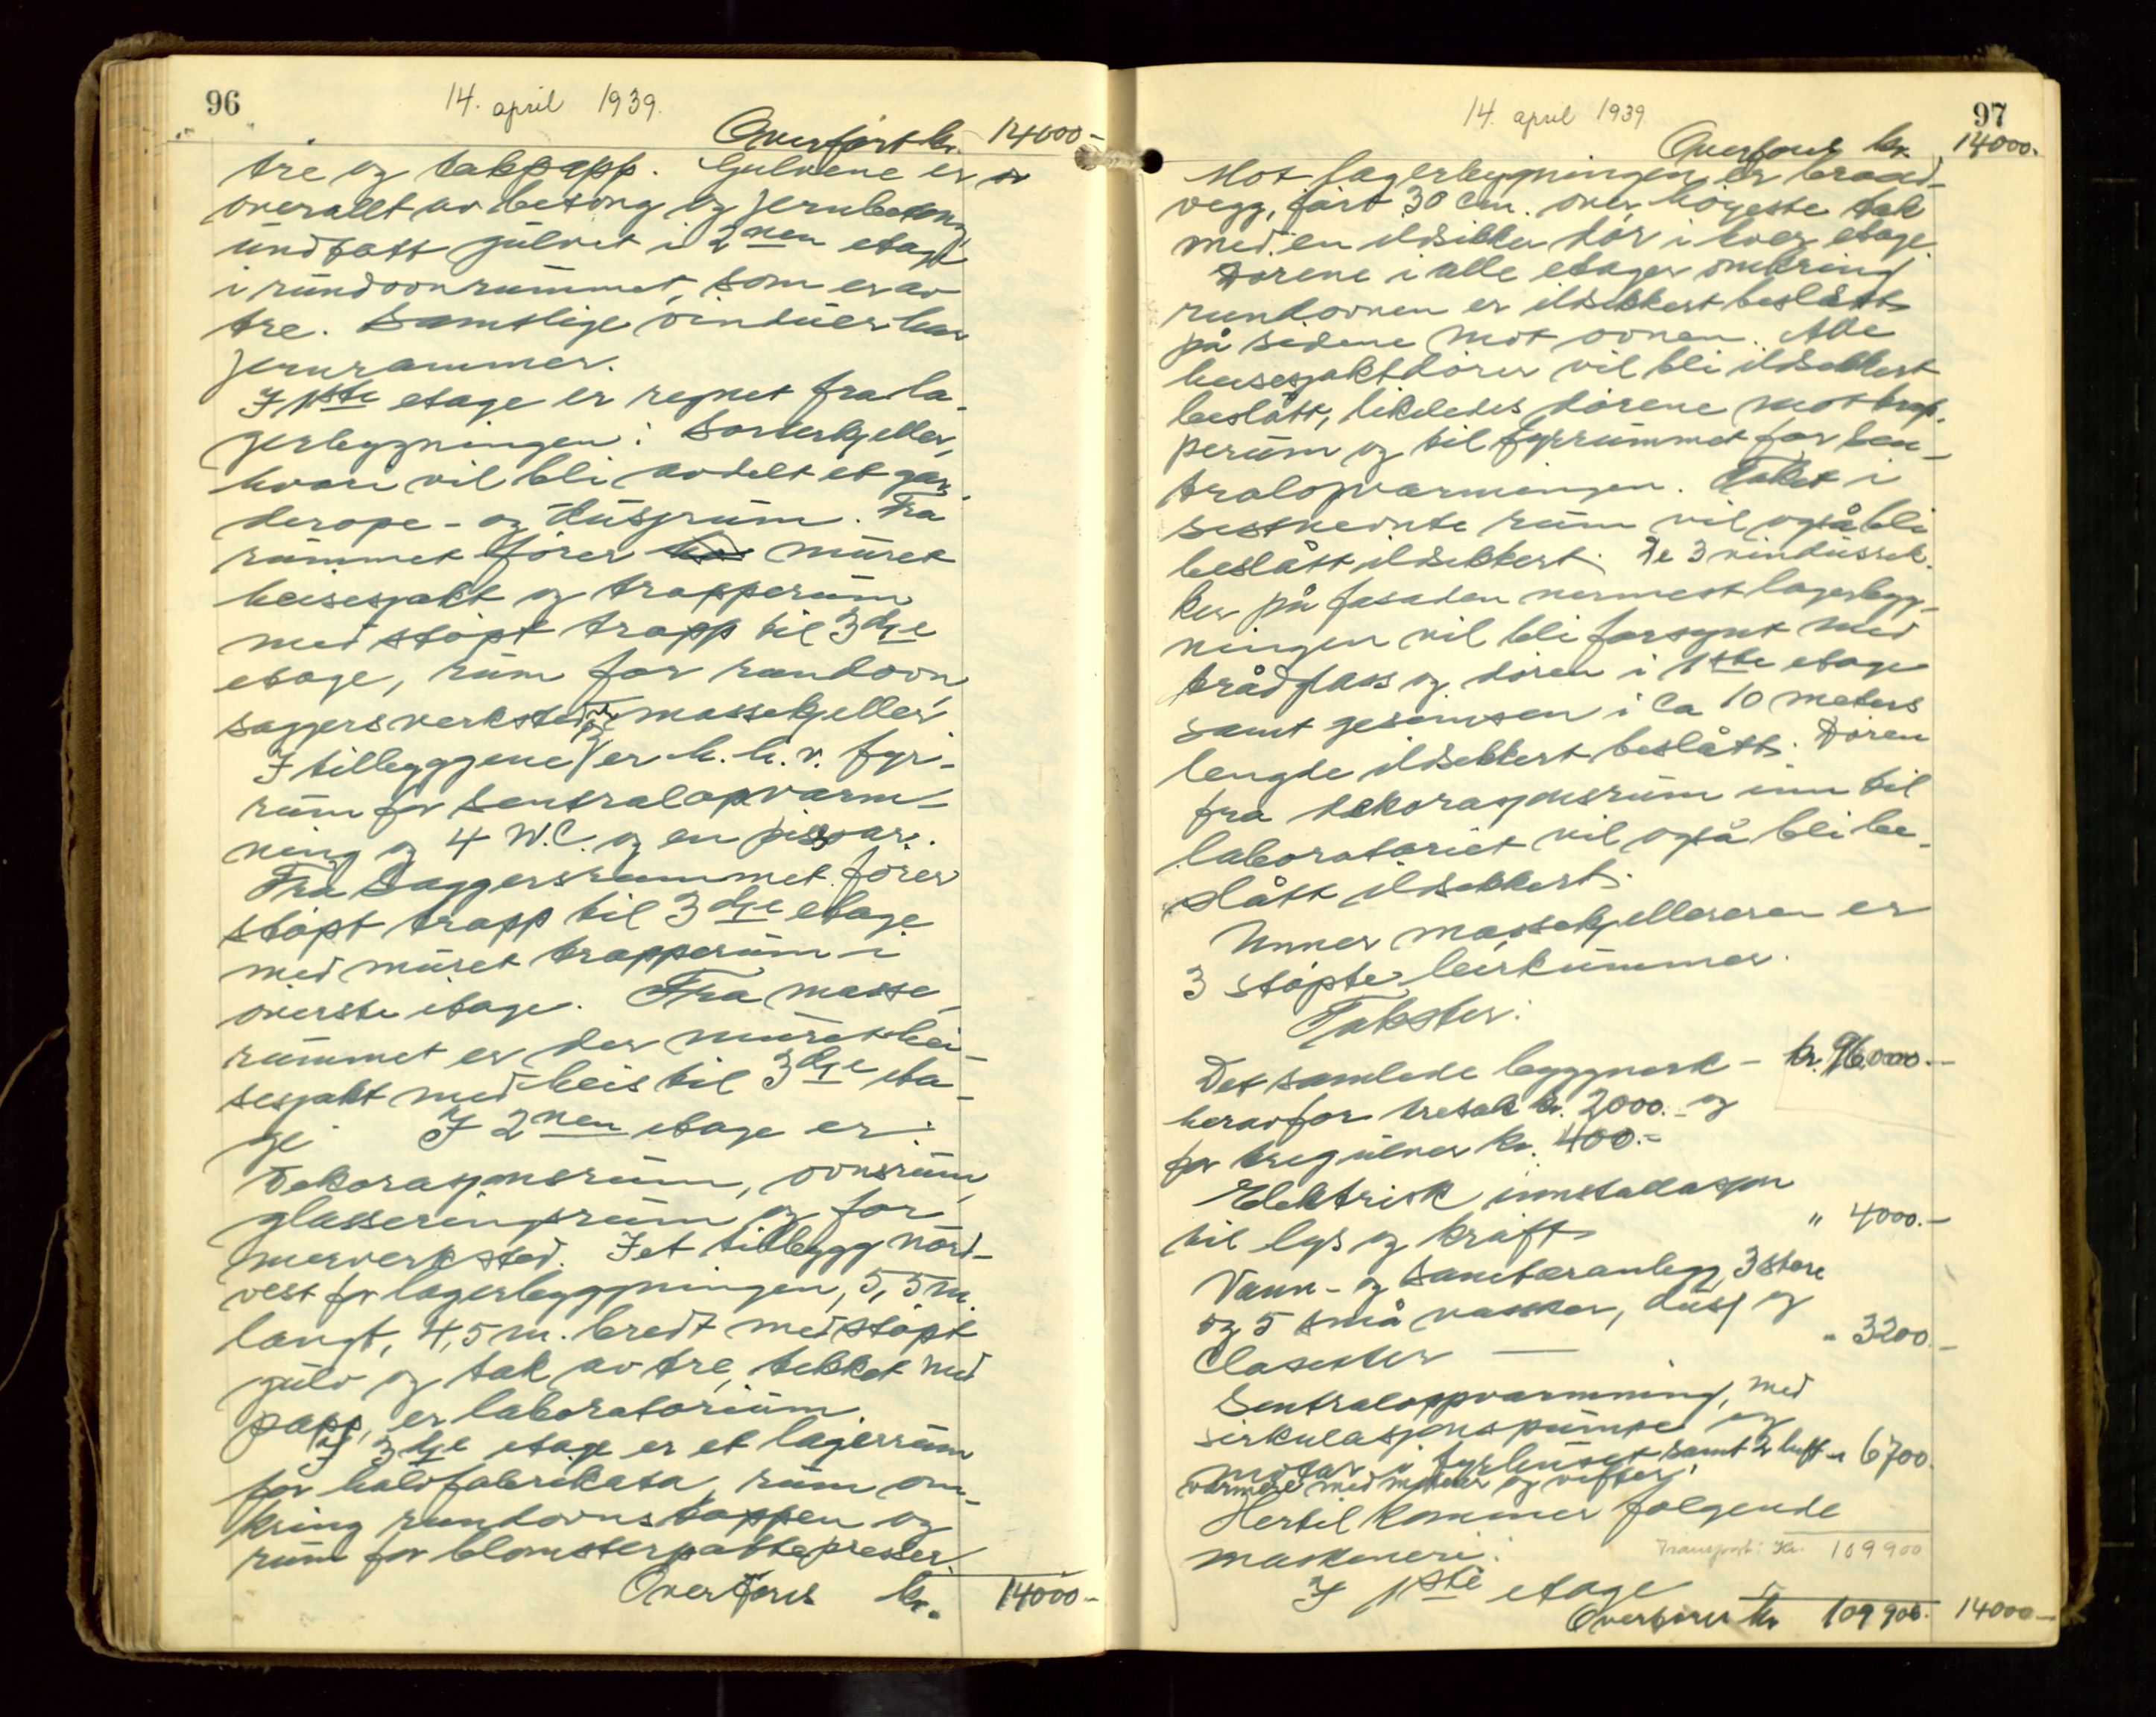 96
14. april 1939.
Overført kr. 14000-
tre og takpapp. Gulvene er
overallt av betong og jernbetong
undtatt gulvet i 2nen etage
i rundovnrummet, som er av
tre. Samtlige vinduer har
jernrammer.
I 1ste etage er regnet fra la-
gerbygningen: Sorterkjeller,
hvori vil bli avdelt et gar-
derope- og dusjrum. Fra
rummet fører muret
heisesjakt og trapperum
med støpt trapp til 3dje
etage, rum for rundovn,
saggersverksted og massekjeller
I tilleggene er h.h.v. fyr-
rum for sentralopvarm-
ning og 4 W.C. og en pissoar.
Fra Saggersrummet fører
støpt trapp til 3dje etage
med muret trapperum i
øverste etage. Fra masse-
rummet er der muret hei-
sesjakt med heis til 3dje eta-
ge I 2nen etage er:
Dekorasjonsrum, ovnsrum,
glasseringsrum og for-
merverksted. I et tillegg nord-
vest for lagerbyggningen, 5,5 m.
langt, 4,5 m. bredt med støpt
gulv og tak av tre, tekket med
papp, er laboratorium.
I 3dje etage er et lagerrum
for halvfabrikata, rum om-
kring rundovnstoppen og
rum for blomsterpottepresser.
Overføres kr. 14000-
97
14. april 1939
Overført kr. 14000.
Mot lagerbygningen er brand-
vegg, ført 30 cm. over høieste tak
med en ildsikker dør i hver etage.
Dørene i alle etager omkring
rundovnen er ildsikkert beslått
på sidene mot ovnen. Alle
heisesjaktdører vil bli ildsikkert
beslått, likeledes dørene mot trap-
perum og til fyrrummet for sen-
tralopvarmingen. Taket i
sistnevnte rum vil også bli
beslått ildsikkert. De 3 vindusrek-
ker på fasaden nermest lagerbygg-
ningen vil bli forsynt med
trådglass og døren i 1ste etage
samt gesimsen i ca 10 meters
lengde ildsikkert beslått. Døren
fra dekorasjonsrum inn til
laboratoriet vil også bli be-
slått ildsikkert.
Unner massekjelleren er
3 støpte leirkummer.
Takster:
Det samlede byggverk - kr. 96000.-
herav for tretak kr. 2000.- og
for tregulver kr. 400.-
Elektrisk innstallasjon
til lys og kraft " 4000.-
Vann- og sanitæranlegg, 3 store
og 5 små vasker, dusj og
Closetter " 3200.-
Sentraloppvarmning, med
sirkulasjonspumpe og
motor i fyrhuset samt 2 luft- " 6700.
varmere med motorer og vifter.
Hertil kommer følgende
maskineri:
Transport: Kr. 109900
I 1ste etage
Overføres kr 109900. 14000-